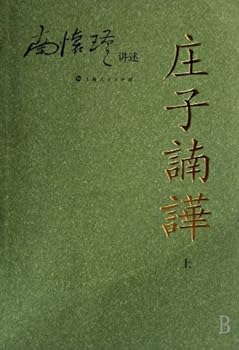 南懷瑾 讲述
上海人民出版社
庄子諵譁
上
B